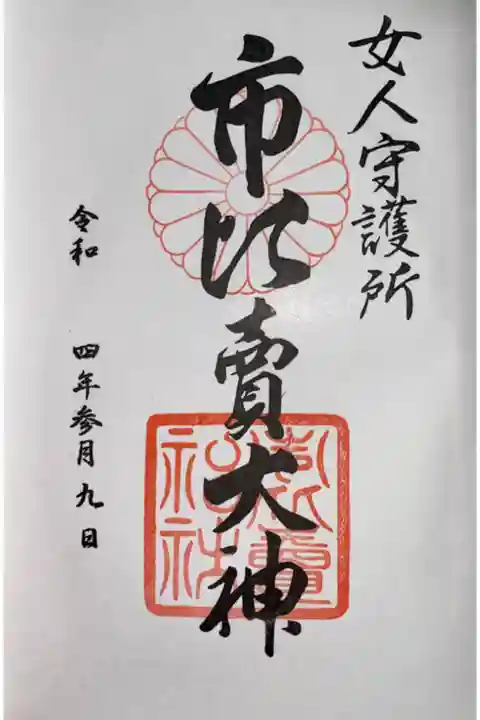 女人守護所
市比賣大神
令和 四年参月九日